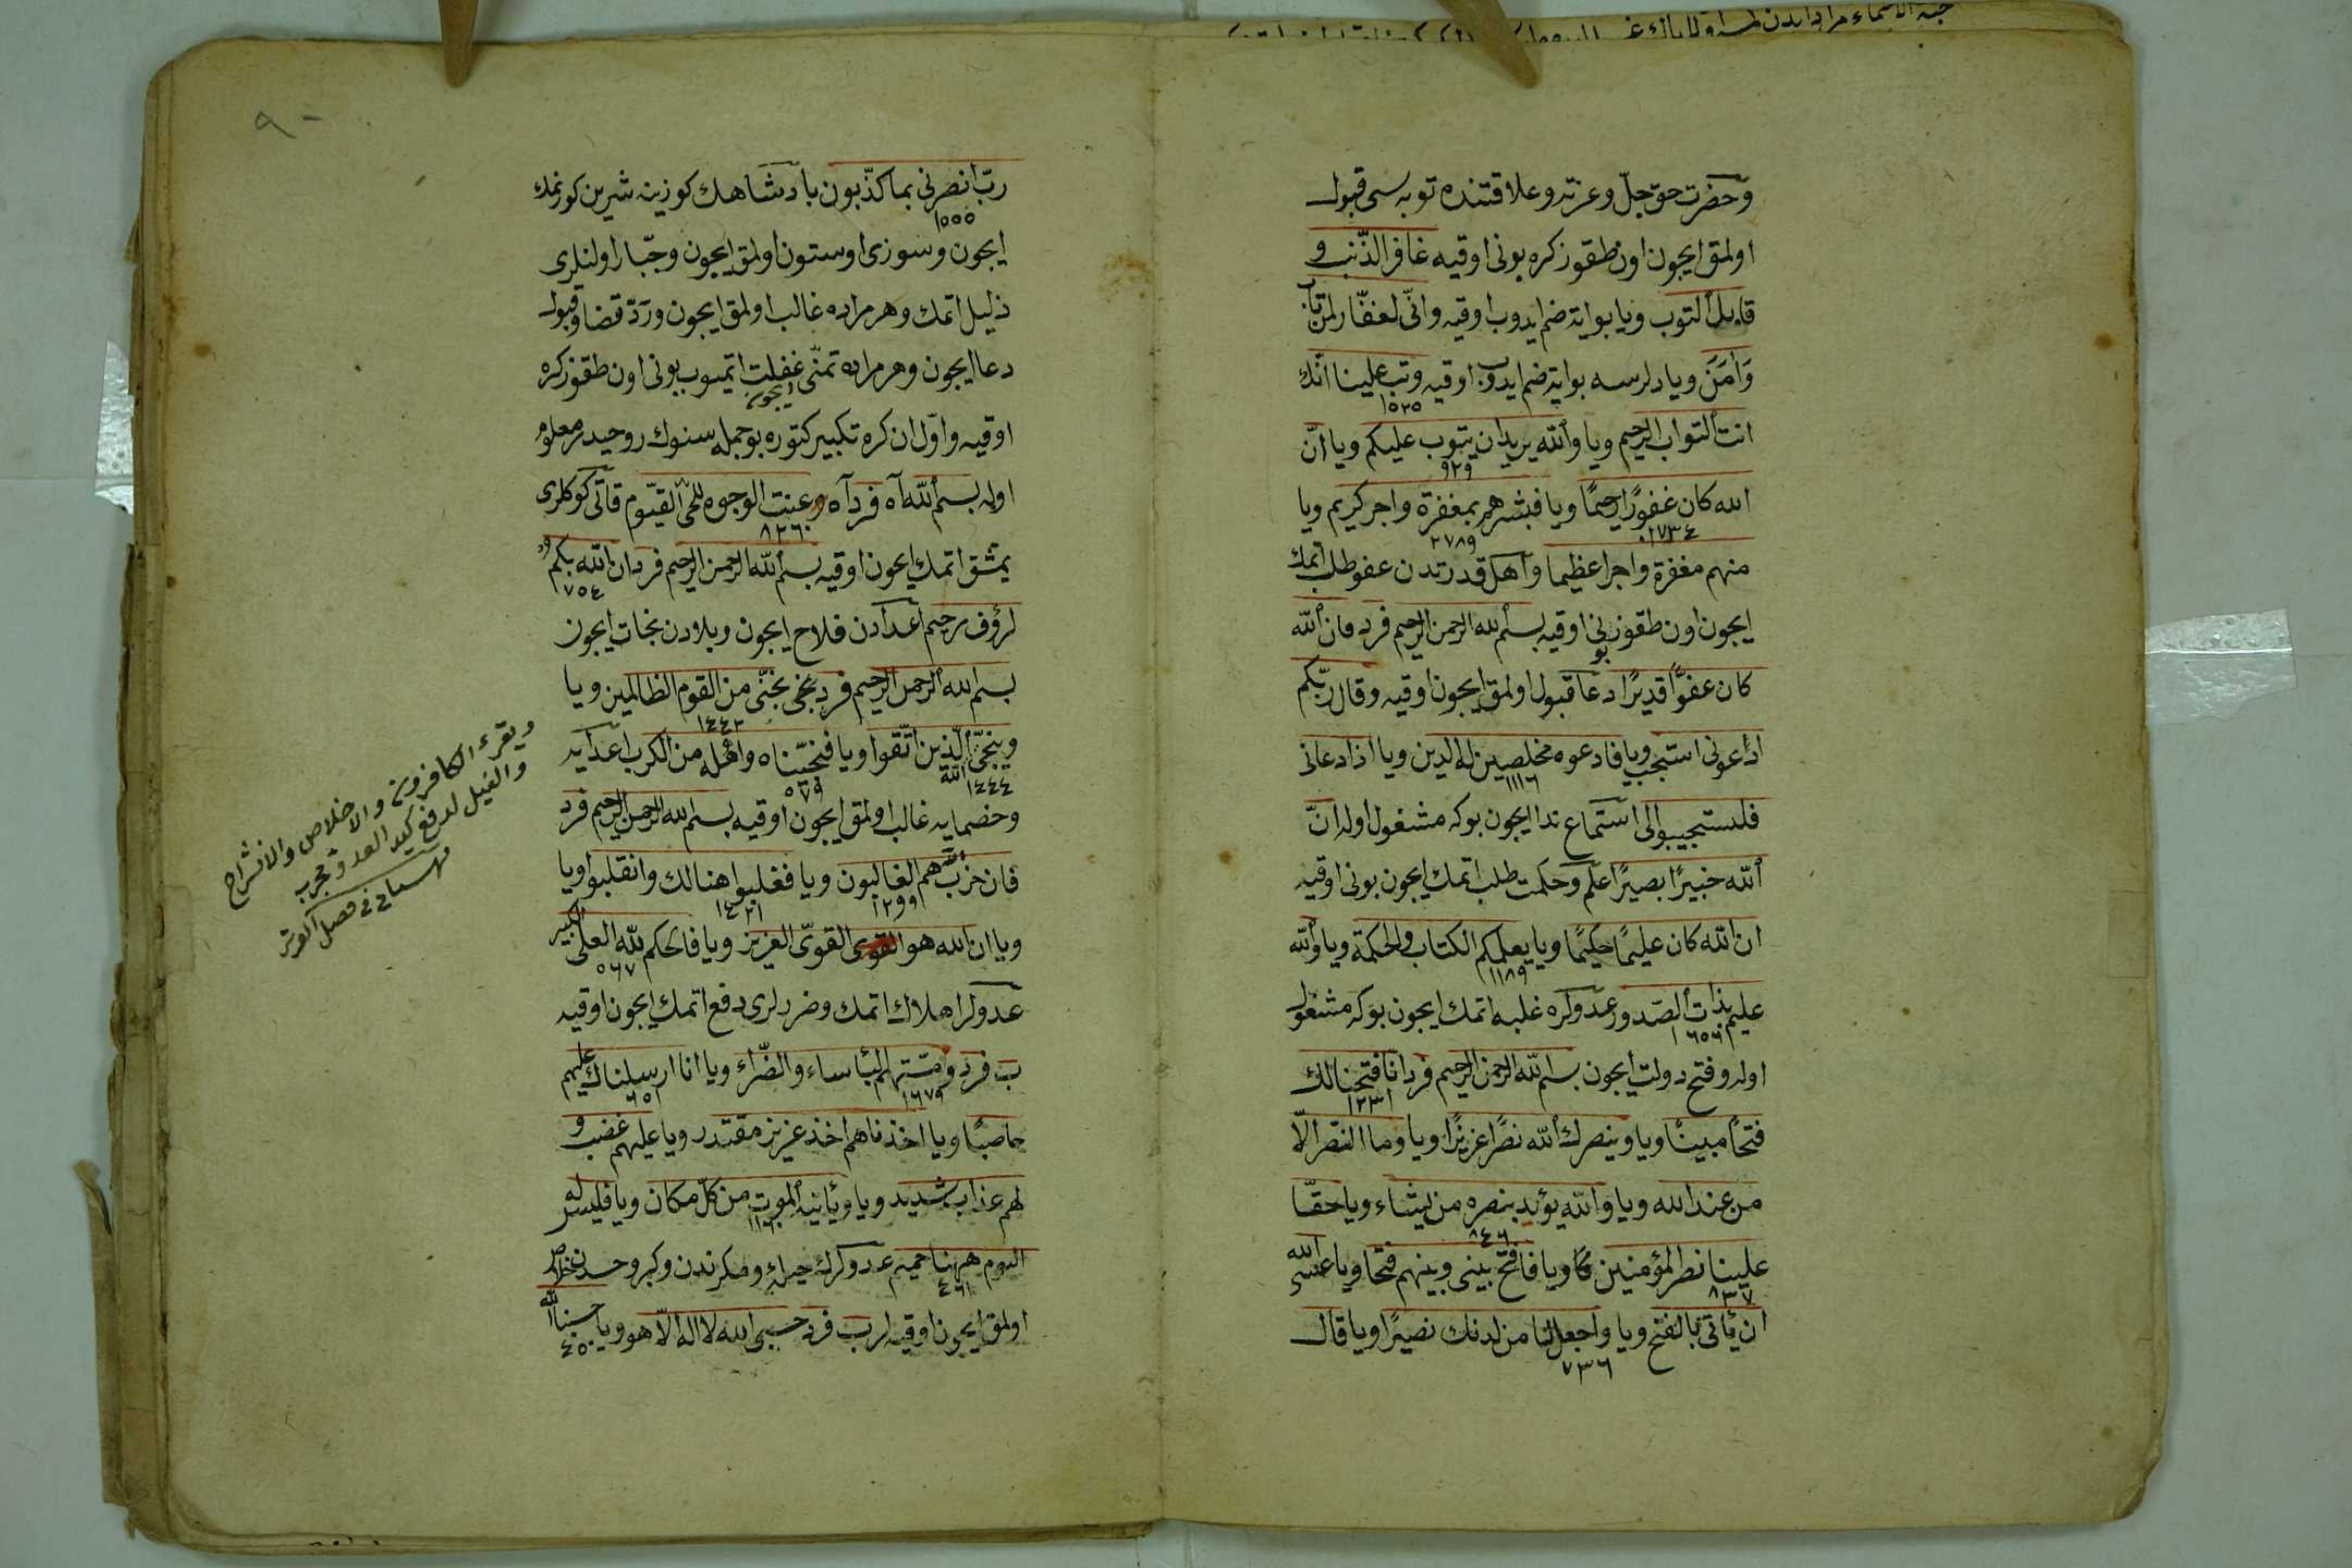 وحضرت حق جلّ وعزته وعلا قتنده توبه سی قبول
اولمق ایچون اون طقوز کره بونی اوقیه غافر الذّنب و
قابل التوب ویا بو ایة ضم ایدوب اوقیه وانّی لغفّار لمن تاب
وَاٰمَنَ ویا دلرسه بو ایة ضم ایدوب اوقیه وتب علینا انّك
١٥٢٥
انت التواب الرحیم ویا والله یرید ان یتوب علیکم ویا انّ
٩٢٩
الله کان غفورًا رحیمًا ویا فبشرهم بمغفرة واجر کریم ویا
١٧٣٤ ٢٧٨٩
منهم مغفرة واجرا عظیما واهل قدرتدن عفو طلب اتمك
ایچون اون طقوز بونی اوقیه بسم الله الرحمن الرحیم فرد فان الله
کان عفوًّا قدیرًا دعا قبول اولمق ایچون اوقیه وقال ربّکم
ادعونی استجب ویا فادعوه مخلصین له الدین ویا اذا دعان
١١١٦
فلیستجیبوا لی استماع ندا ایچون بوکه مشغول اوله انّ
الله خبیرًا بصیرًا علم وحکمت طلب اتمك ایچون بونی اوقیه
ان الله کان علیمًا حکیمًا ویا یعلمکم الکتاب والحکمة ویا والله
١١٨٩
علیم بذات الصّدور عدولره غلبه اتمك ایچون بوکه مشغول
١٦٥٦
اوله و فتح دولت ایچون بسم الله الرحمن الرحیم فرد انّا فتحنا لك
١٢٣١
فتحًا مبینًا ویا وینصرك الله نصرًا عزیزًا ویا وما النّصر الّا
من عند الله ویا والله یؤید بنصره من یشاء ویا حقّا
٨٤٦
علینا نصر المؤمنین ویا فافتح بینی وبینهم فتحا ویا عسی الله
٨٣٧
ان یأتی بالفتح ویا واجعل لنا من لدنك نصیرًا ویا قال
٧٣٦
٩٠
ربّ انصرنی بما کذّبون پادشاهك کوزینه شیرین کورنمك
١٥٥٥
ایچون وسوزی اوستون اولمق ایچون وجبّار اولنلری
ذلیل اتمك وهر مراده غالب اولمق ایچون وردّ قضا وقبول
دعا ایچون وهر مراده تمنّی ایچون غفلت اتمیوب بونی اون طقوز کره
اوقیه واوّل اون کره تکبیر کتوره بو جمله سنوك روحیدر معلوم
اوله بسم الله آه فرد آه وعنت الوجوه للحیّ القیّوم قاتی کوکلری
٨٢٦
یمشق اتمك ایچون اوقیه بسم الله الرحمن الرحیم فرد ان الله بکم
١٧٥٤
لرؤف رحیم اعدادن فلاح ایچون وبلادن نجات ایچون
بسم الله الرحمن الرحیم فرد نجّنی من القوم الظالمین ویا
١٤٤٢
وینجّی الله الّذین اتّقوا ویا فنجّیناه واهله من الکرب اعدایه
١٤٤٤ ٥٧٩
وخضمایه غالب اولمق ایچون اوقیه بسم الله الرحمن الرحیم فرد
فان حزب الله هم الغالبون ویا فغلبوا هنالك وانقلبوا ویا
١٢٩٩ ١٤٢١
ویا ان الله هو القوّی العزیز ویا فالحکم لله العلی الکبیر
٥٦٧
عدولر اهلاك اتمك وضررلری دفع اتمك ایچون اوقیه
ب فرد ومسّتهم البأساء والضّرّاء ویا انا ارسلناك علیهم
١٦٧٩ ٦٥١
حاصبًا ویا اخذناهم اخذ عزیز مقتدر ویا علیهم غضب و
لهم عذاب شدید ویا ویأتیه الموت من کلّ مکان ویا فلیس له
١١٦
الیوم ههنا حمیم عدوکرك حیله ومکرندن وکبر وحسدندن خلاص
٤٦١
اولمق ایچون اوقیه لر ب فرد حسبی الله لا اله الّا هو ویا حسبنا الله
٤٥٠
ویقرء الکافرون والاخلاص والانشراح
والفیل لدفع کید العدو مجرب
فی فصل